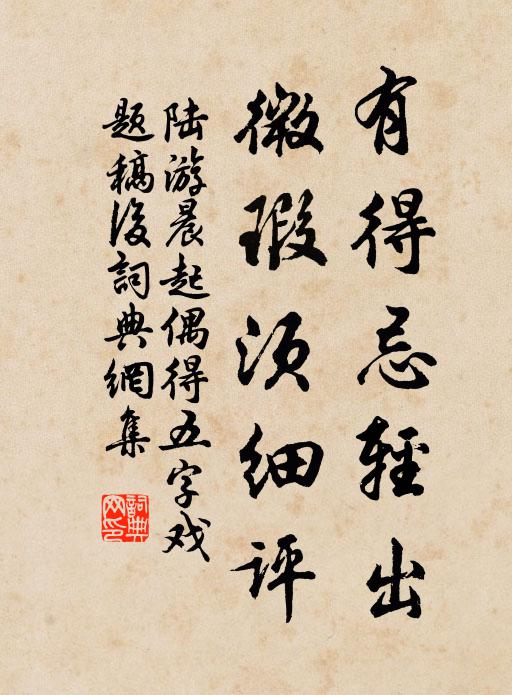 有得忌轻出
微瑕须细评
陆游晨起偶得五字戏
题稿後詞典網集
詞典
网印